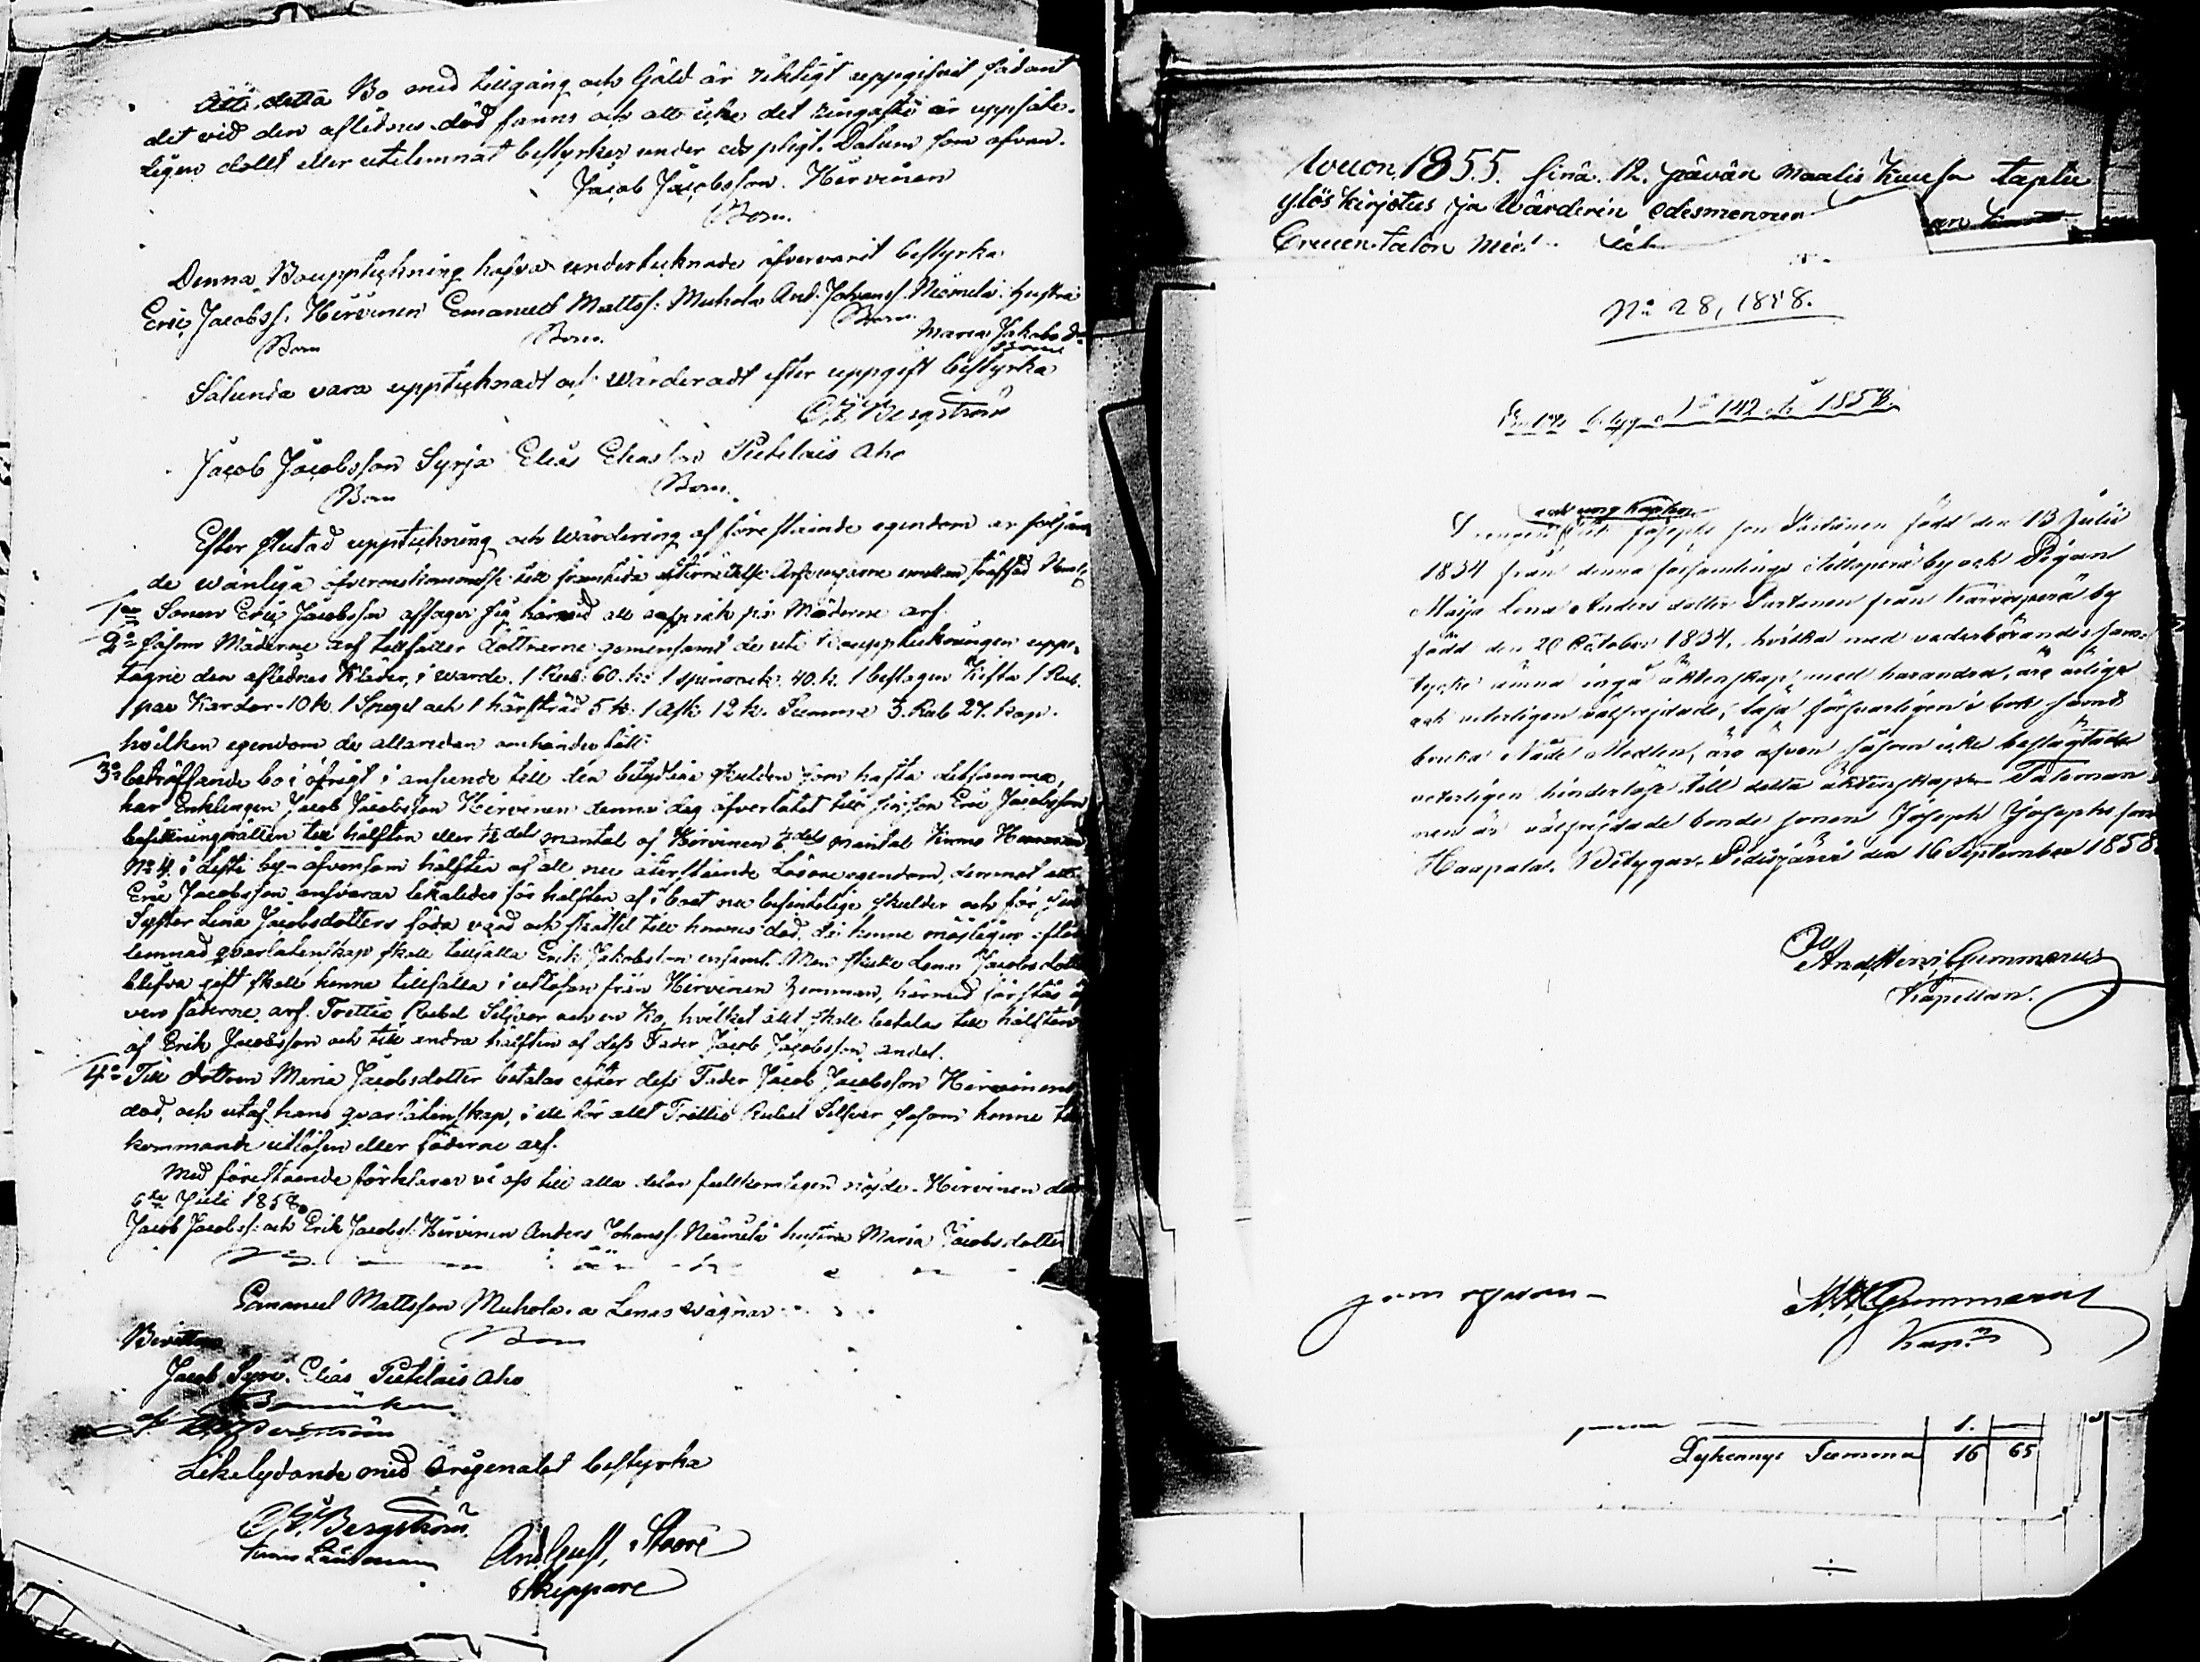 Att detta Bo med tillgång och Gäld är riktigt uppgifvit sådant
det vid den aflidnes död fanns och att icke det ringaste är uppsåte-
ligen dolt eller utelemnat bestyrkes under eds pligt. Datum som ofvan.
Jacob Jacobsson Hirvinen
Bom.
Denna Bouppteckning hafva undertecknade öfvervarit bestyrka
Eric Jacobss. Hirvinen Emanuel Mattss. Muhola And. Johanss. Niemelä hustru
Bom Bom. Bom. Maria Jakobsd.
Sålunda vara upptecknadt och värderadt efter uppgift bestyrka
Bergström
Jacob Jacobsson Syrjä Elias Eliasson Pietiläis Aho
Bom Bom.
Efter slutad uppteckning och wärdering af föreståinde egendom är följan
de wänliga öfverenskommelse till framtida efterrättelse Arfvingarne emellan träffad
1o Sonen Eric Jacobsson afsäger sig härmed all anspråk på Möderne arf.
2o såsom Möderne arf tillfaller döttrarne gemensamt de uti Bouppteckningen upp-
tagne den aflidnes Kläder, i wärde 1 Rub. 60 k. 1 spinrock 40 k. 1 beslagen Kista 1 Rub.
1 par Kardor 10 k. 1 Spegel och 1 5 k. 1 Ask 12 k. Summa 3 Rub 27 kop.
hvilken egendom de allaredan omhänderhätt.
3o beträffande bo i öfrigt i anseende till den betydliga skulden som häfta detsamma,
har Enklingen Jacob Jacobsson Hirvinen denna dag öfverlåtit till sin son Eric Jacobsson
besittningsrätten till hälften eller dels mantal af Hirvinen dels mantal Krono Hemman
No 4 i by äfvensom hälften af all nu återståinde Lösöre egendom, deremot att
Eric Jacobsson ansvarar likaledes för hälften af i boet nu befintelige skulder och för sin
Syster Lena Jacobsdotters föda vård och skötsel till hennes död, då henne möjligen efter-
lemnad qvarlåtenskap skall tillfalla Erik Jakobsson ensamt. Men skulle Lena Jacobsdotter
blifva gift skall henne tillfalla i utlösen från Hirvinen hemman, härmed förstås äf
ven fäderne arf. Trettio Rubel Silfver och en Ko, hvilket allt skall betalas till hälften
af Erik Jacobsson och till andra hälften af dess Fader Jacob Jacobsson andel.
4o Till dottren Maria Jacobsdotter betalas efter dess Fader Jacob Jacobsson Hirvinens
död, och utaf hans qvarlåtenskap, i ett för allt Trettio Rubel Silfver såsom henne till
kommande utlösen eller fäderne arf.
Med föreståaende förklarar vi oss till alla delar fullkomligen nöjde. Hirvinen den
6te Juli 1858.
Jacob Jacobss: och Erik Jacobss: Hirvinen Anders Johanss. Niemelä hustru Maria Jacobsdotter
Emanuel Mattsson Muhola a Lenas wägnar
Bom
Bevittna
Jacob Syrjä Elias Pietiläis Aho
Bomärken
Bergström
Likelydande med Originalet bestyrka
Bergström
Länsman And Gust. Stoore
Skeppare
Wuon 1855. sinä 12. päivän Maalis Kuusa taptu
ylöskirjotus ja Wärderin edesmennen
Cruun talon
No 28, 1858.
No 142 1858.
Josephs son Partanen född den 13 Julii
1834 från denna församlings by och Pigan
Maja Lena Anders dotter Partanen från by
född den 20 October 1834, hvilka med vederbörandes sam-
tycke ämna ingå äktenskap med hvarandra, äro ärlige
och veterligen välfrejdade, läsa försvarligen i bok samt
bruka Nåde Medlen, äro äfven såsom icke beslägtade
veterligen hinderlöse till detta äktenskap. Talemannen
är välfrejdade bonde sonen Joseph Josephsson
Haapala. Betygar. Pidisjärvi den 16 September 1858.
And. Henr. Gummerus
Kapellan.
Gummerus
Kap:n
1.
Lyhennys Summa 16 65